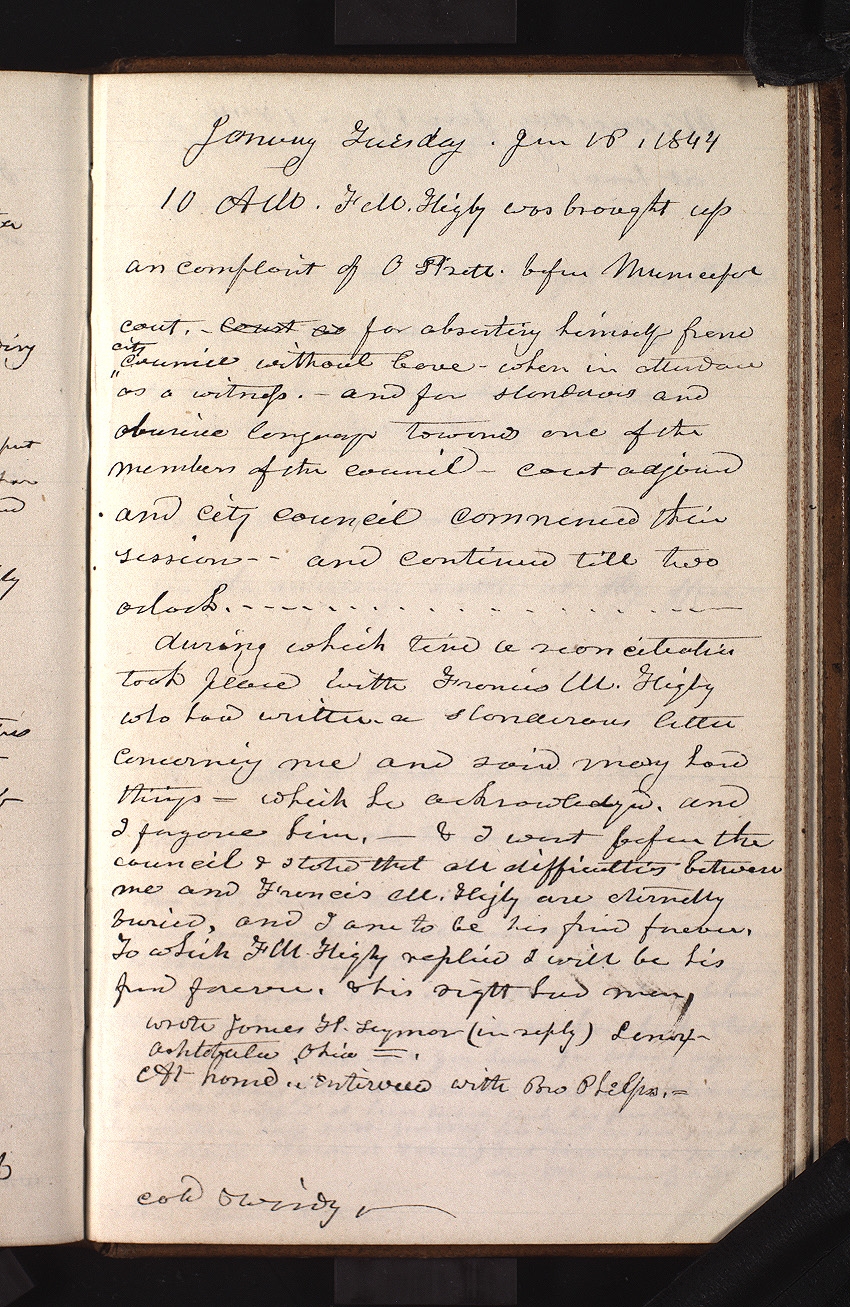 January Tuesday. Jan 16, 1844
10 A.M. F M. Higby was brought up
on complaint of O P. before Municipal
court. - court for absenting himself from
city
council without leave - when in attendance
as a witness. - and for slanderous and
abusive language towards one of the
members of the council - court adjourned
and city council commenced their
session - - and continued till two
oclock. - - - - - - - - - - - - - - -
during which time a reconcilation
took place with Francis M. Higby
who had written a slanderous letter
concerning me and said many hard
things - which he acknowledged. and
I forgave him. - & I went before the
council & stated that all difficulties between
me and Francis M. Higby are eternally
buried, and I am to be his friend forever.
To which F M. Higby replied I will be his
friend forever. & his right hand man,
wrote James H. Seymor (in reply) Lenox
Ashtabula Ohio =.
At home. interview with Bro Phelps. =
cold & windy